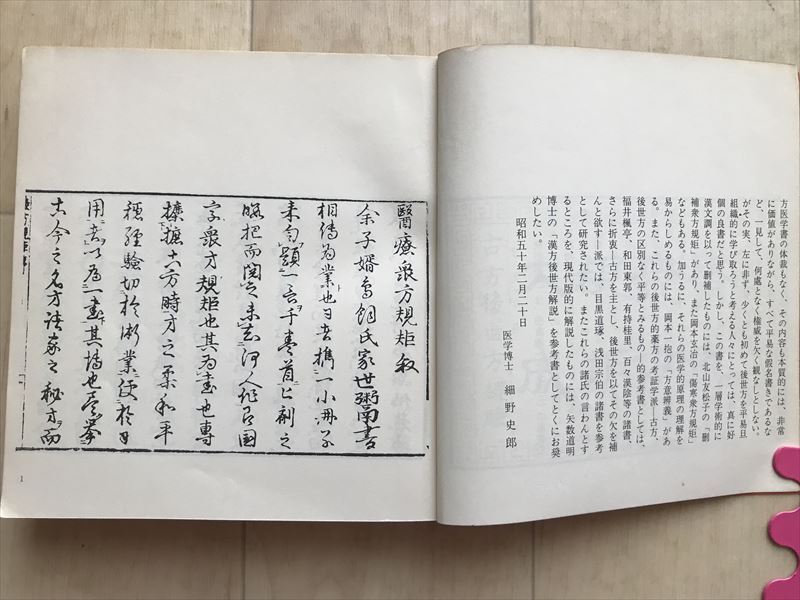 方医学書の体裁もなく、しかも内容も本質的には、非常
に価値がありながら、すべて平易な仮名書きであるな
ど、一見して、何處となく権威を欠く観なしとしない。
がその実、左に非ず、少くとも初めて後世方を平易且
組織的に学び取ろうと考える人々にとっては、真に好
個の良書だと思う。しかし、この書を、一層学術的に
漢文調を以って刪補したものには、北山友松子の「刪
補衆方規矩」があり、また岡本玄冶の「傷寒衆方規矩」
などもある。加うるに、それらの医学的原理の理解を
易からしめるものには、岡本一抱の「方意辨義」があ
る。また、これらの後世方的薬方の考証学派―古方、
後世方の区別なく平等とみるもの―的参考書としては、
福井楓亭、和田東郭、有持桂里、百々漢陰等の諸書、
さらに折衷―古方を主とし、後世方を以てその欠を補
んと欲す―派では、目黒道琢、浅田宗伯の諸書を参考
として研究されたい。またこれらの諸氏の言わんとす
るところを、現代版的に解説したものには、矢数道明
博士の「漢方後世方解説」を参考書としてとくにお奨
めしたい。
昭和五十年二月二十日
医学博士 細野史郎
醫療衆方規矩敘
余子婿寫飼氏家世粥為書
相傳為業也日者携一小冊子
来句題一言于巻首上剞之
略把而閲之未知何人作名國
字衆方規矩也其為書也專
摭古方時方之柔和平
穏經驗切於術業便於日
用者以為一書其揚也蓋挙
古今之名方諸家之秘方而
1